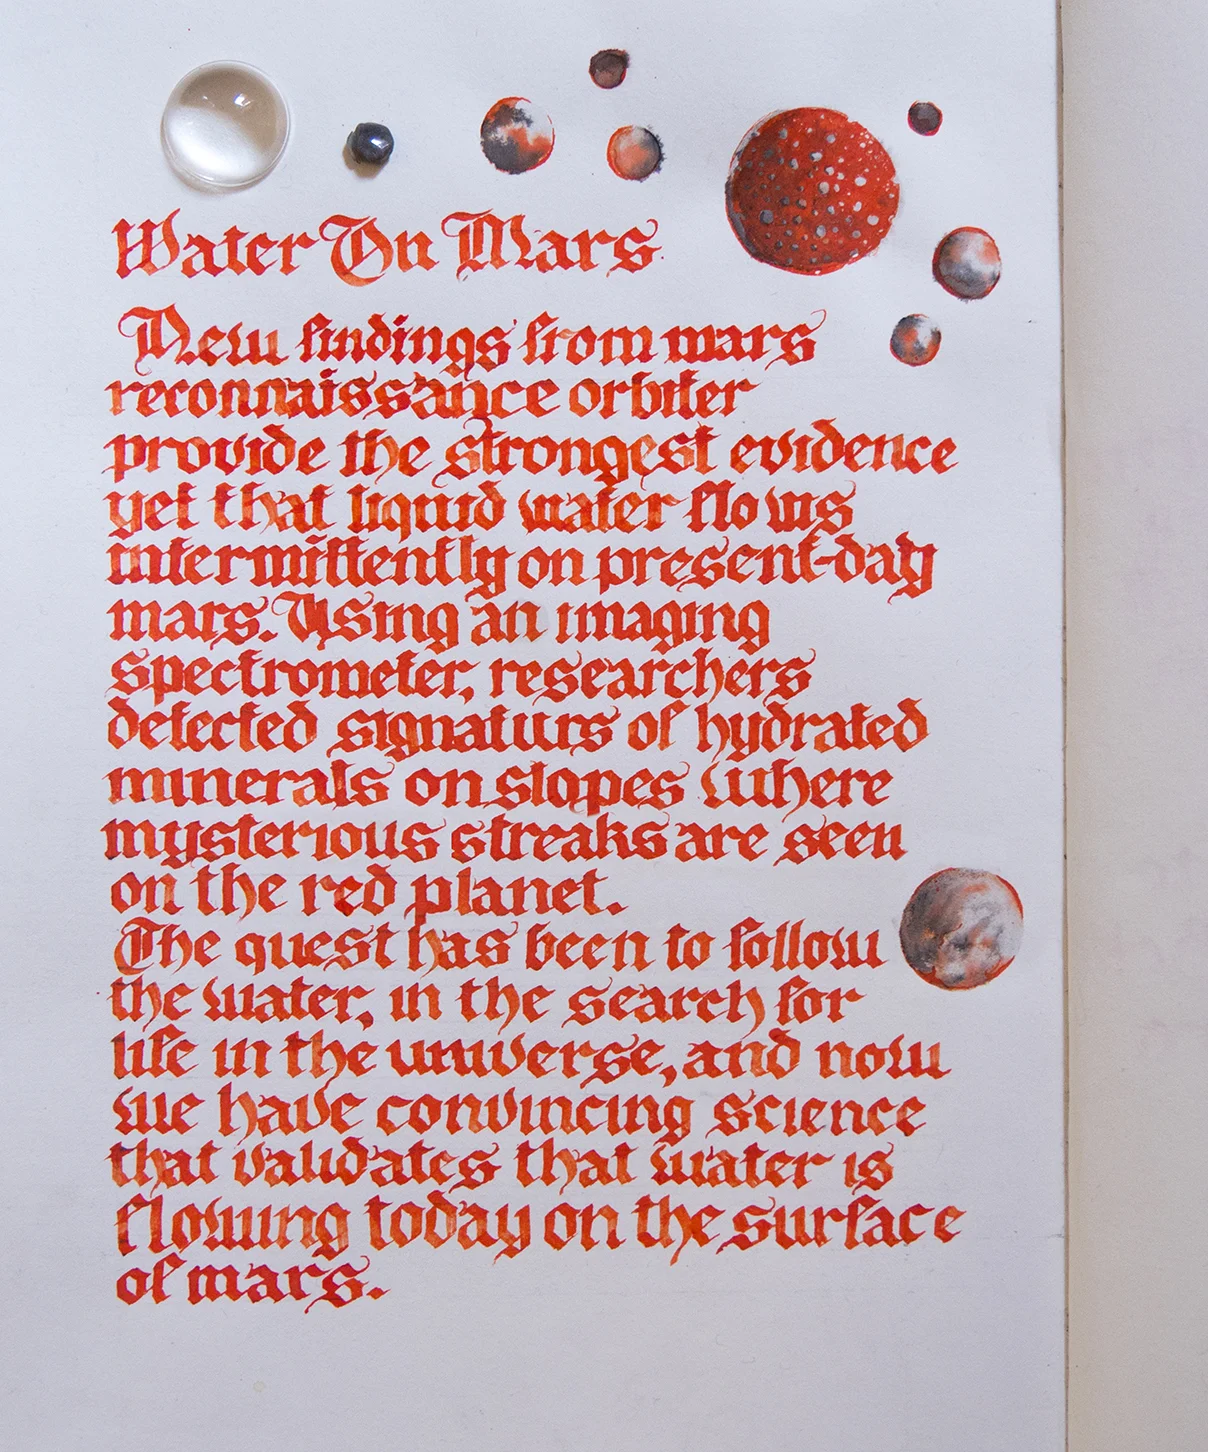 Water On Mars
New findings from mars
reconnaissance orbiter
provide the strongest evidence
yet that liquid water flows
intermittently on present-day
mars. Using an imaging
spectrometer, researchers
detected signaturs of hydrated
minerals on slopes where
mysterious streaks are seen
on the red planet.
The quest has been to follow
the water, in the search for
life in the universe, and now
we have convincing science
that validates that water is
flowing today on the surface
of mars.